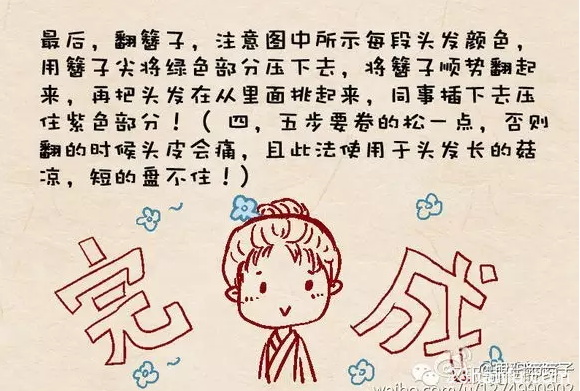 最后，翻簪子，注意图中所示每段头发颜色，
用簪子尖将绿色部分压下去，将簪子顺势翻起
来，再把头发在从里面挑起来，同事插下去压
住紫色部分！（ 四，五步要卷的松一点，否则
翻的时候头皮会痛，且此法使用于头发长的菇
凉，短的盘不住！）
完成